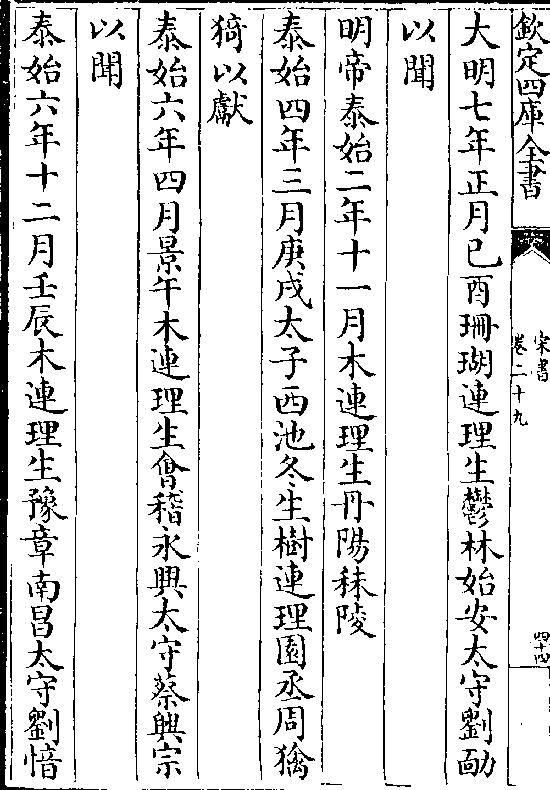 欽定四庫全書
宋書
卷二十九
四十四
大明七年正月己酉珊瑚連理生鬱林始安太守劉勔
以聞
明帝泰始二年十一月木連理生丹陽秣陵
泰始四年三月庚戌太子西池冬生樹連理園丞周獢
猗以獻
泰始六年四月景午木連理生會稽永興太守蔡興宗
以聞
泰始六年十二月壬辰木連理生豫章南昌太守劉愔